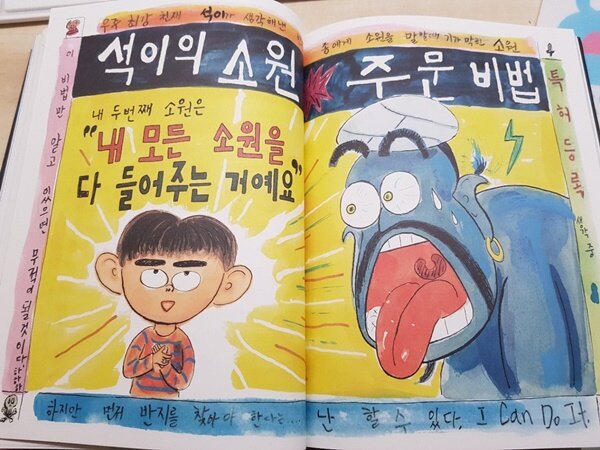 우주 최강 천재 석이가 생각해낸
석이의 소원
내 두번째 소원은
"내 모든 소원을
다 들어주는 거예요"
이 비법만 알고 있으면 무적이 될것이다. 하하하
하지만 먼저 반지를 찾아야 한다는...
종에게 소원을 말할때 기가 막힌 소원
주문 비법
특허등록
생각 중
난 할 수 있다. I Can Do It.